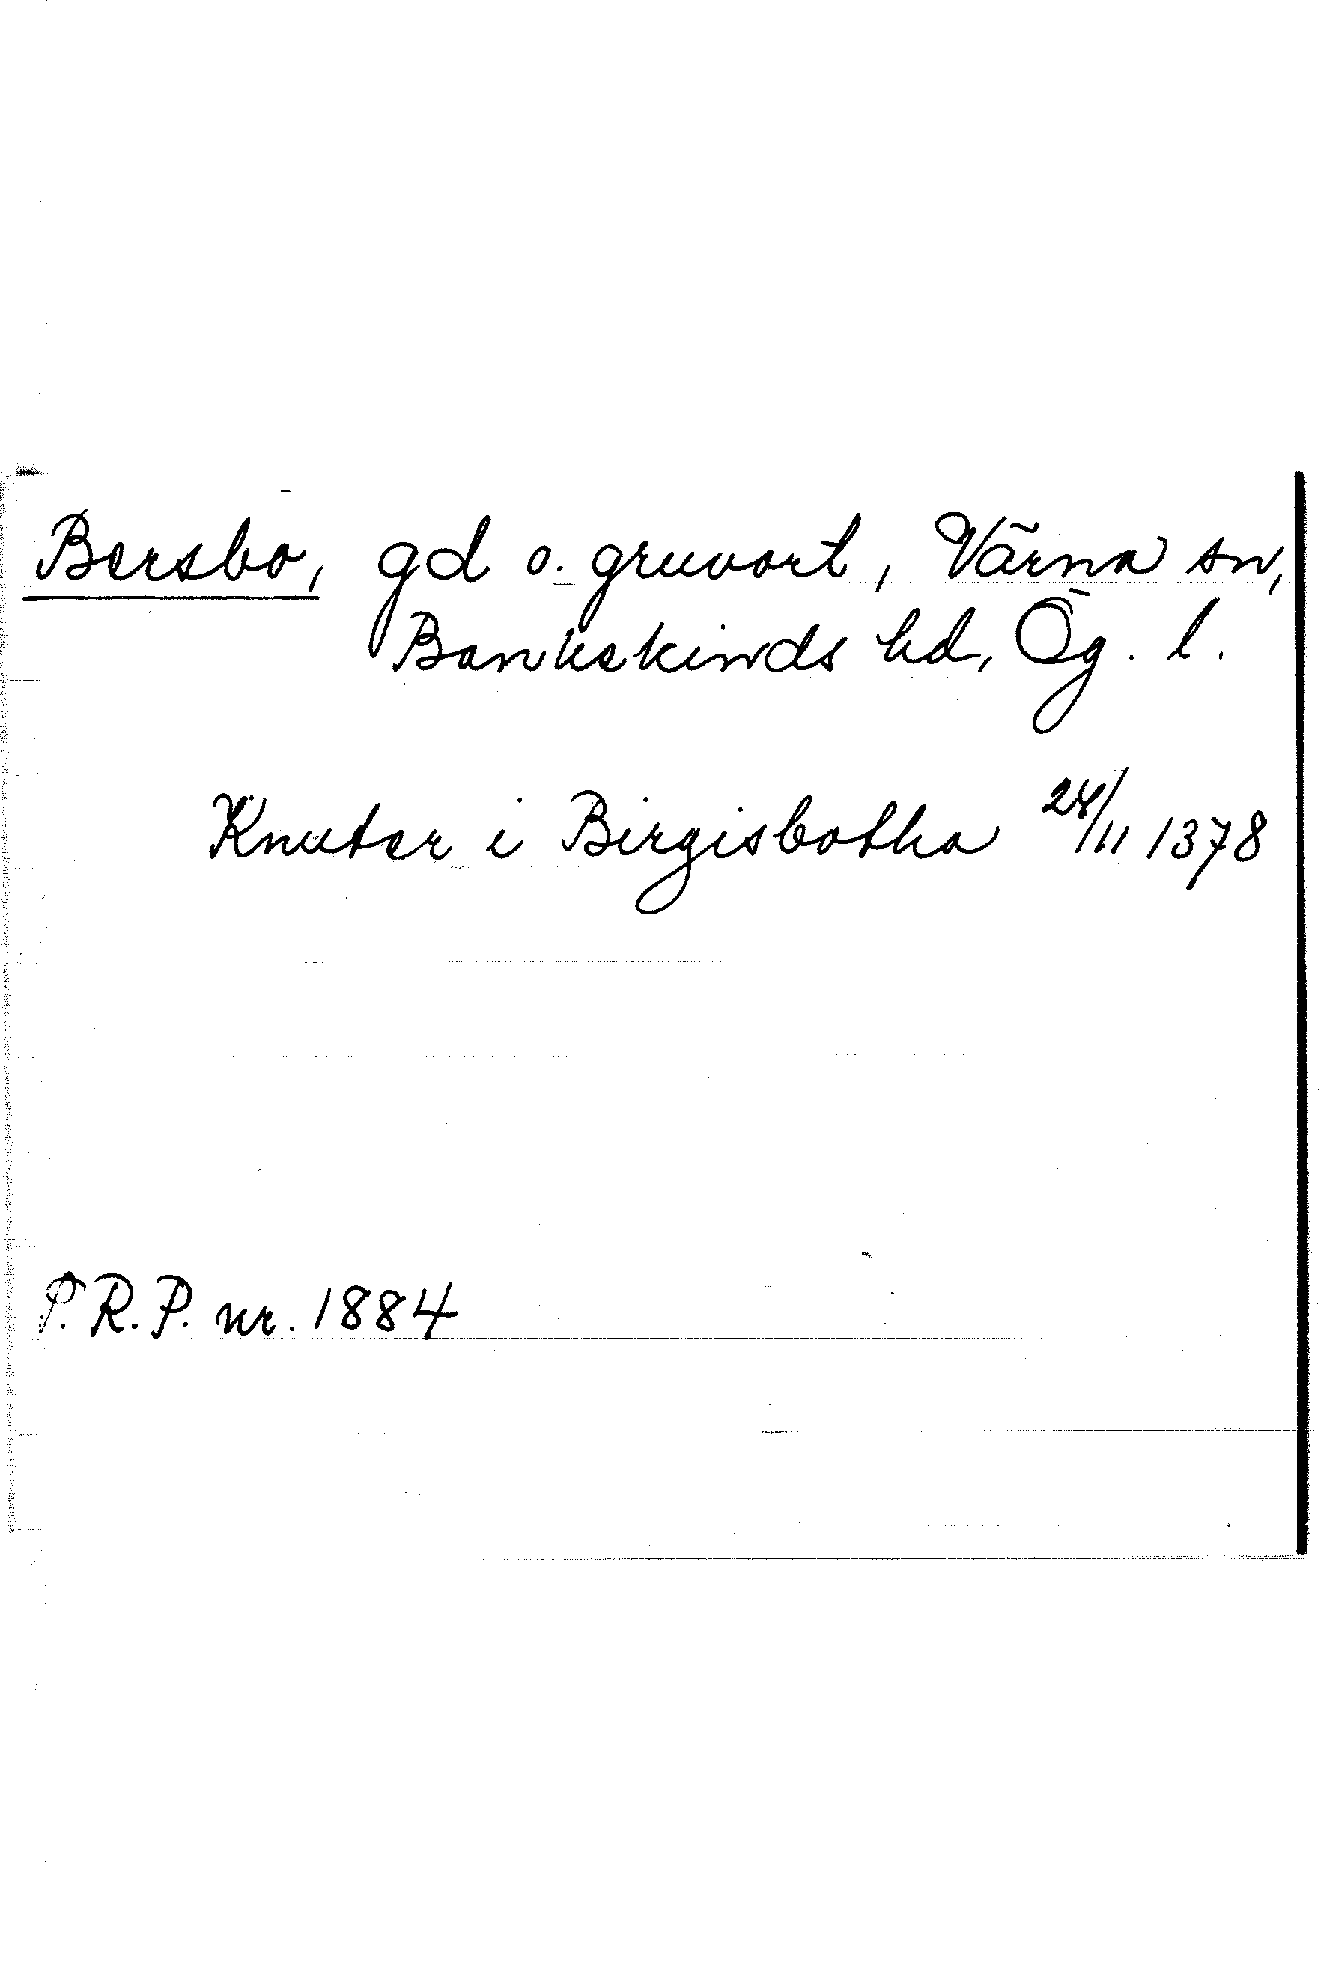 Bersbo, gd o. gruvort, Värna sn,
Bankekinds hd, Ög. l.
Knuter i Birgisbotha 28/11 1378
P.R.P. nr. 1884